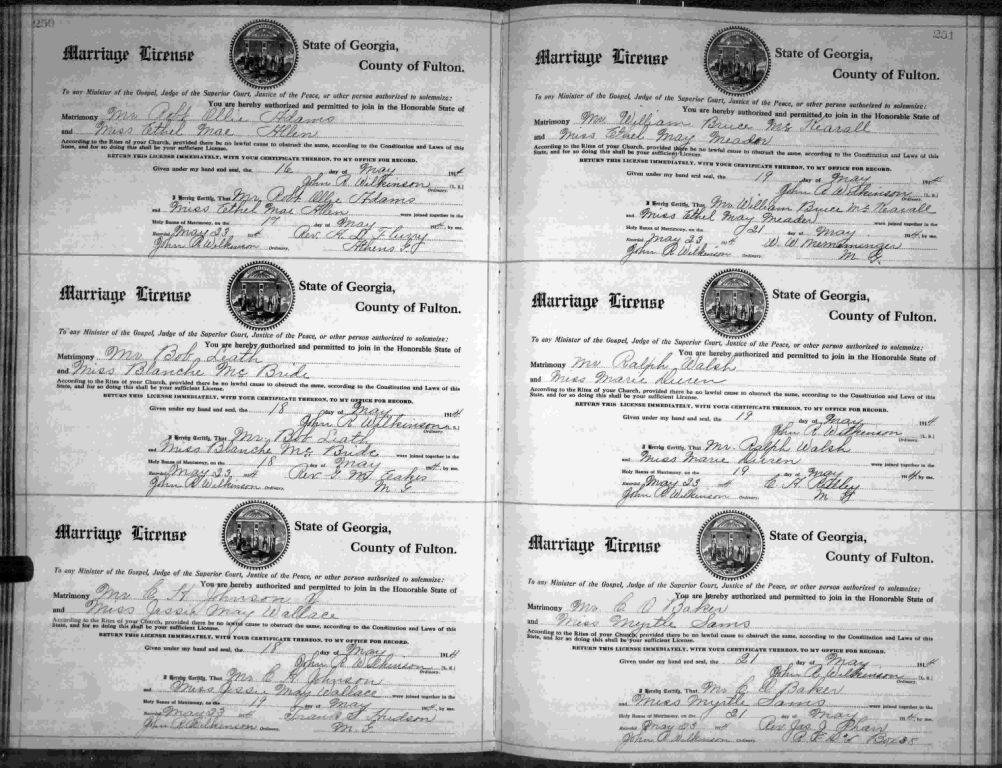 250
Marriage License
State of Georgia,
County of Fulton.
To any Minister of the Gospel, Judge of the Superior Court, Justice of the Peace, or other person authorized to solemnize:
You are hereby authorized and permitted to join in the Honorable State of
Matrimony Mr. Robt Ollie Adams
and Miss Ethel Mae Allen
According to the Rites of your Church, provided there be no lawful cause to obstruct the same, according to the Constitution and Laws of this
State, and for so doing this shall be your sufficient License.
RETURN THIS LICENSE IMMEDIATELY, WITH YOUR CERTIFICATE THEREON, TO MY OFFICE FOR RECORD.
Given under my hand and seal, the 16 day of May 1914
John R. Wilkinson (L. S.)
Ordinary.
I Hereby Certify, That Mr Robt Ollie Adams
and Miss Ethel Mae Allen were joined together in the
Holy Banns of Matrimony, on the 17 day of May 1914, by me.
Recorded May 23 14 Rev.
John R. Wilkinson Ordinary. Athens
Marriage License
State of Georgia,
County of Fulton.
To any Minister of the Gospel, Judge of the Superior Court, Justice of the Peace, or other person authorized to solemnize:
You are hereby authorized and permitted to join in the Honorable State of
Matrimony Mr Bob Leath
and Miss Blanche Mc Bride
According to the Rites of your Church, provided there be no lawful cause to obstruct the same, according to the Constitution and Laws of this
State, and for so doing this shall be your sufficient License.
RETURN THIS LICENSE IMMEDIATELY, WITH YOUR CERTIFICATE THEREON, TO MY OFFICE FOR RECORD.
Given under my hand and seal, the 18 day of May 1914
John R. Wilkinson (L. S.)
Ordinary.
I Hereby Certify, That Mr. Bob Leath
and Miss Blanche Mc Bride were joined together in the
Holy Banns of Matrimony, on the 18 day of May 1914, by me.
Recorded May 23 14 Rev. Eakes
John R. Wilkinson Ordinary. M G
Marriage License
State of Georgia,
County of Fulton.
To any Minister of the Gospel, Judge of the Superior Court, Justice of the Peace, or other person authorized to solemnize:
You are hereby authorized and permitted to join in the Honorable State of
Matrimony Mr C H Johnson
and Miss Jessie May Wallace
According to the Rites of your Church, provided there be no lawful cause to obstruct the same, according to the Constitution and Laws of this
State, and for so doing this shall be your sufficient License.
RETURN THIS LICENSE IMMEDIATELY, WITH YOUR CERTIFICATE THEREON, TO MY OFFICE FOR RECORD.
Given under my hand and seal, the 18 day of May 1914
John R. Wilkinson (L. S.)
Ordinary.
I Hereby Certify, That Mr C H Johnson
and Miss Jessie May Wallace were joined together in the
Holy Banns of Matrimony, on the 19 day of May 1914, by me.
Recorded May 23 14 Hudson
John R. Wilkinson Ordinary. M. G.
251
Marriage License
State of Georgia,
County of Fulton.
To any Minister of the Gospel, Judge of the Superior Court, Justice of the Peace, or other person authorized to solemnize:
You are hereby authorized and permitted to join in the Honorable State of
Matrimony Mr. William Bruce Mc Kearall
and Miss Ethel May Meador
According to the Rites of your Church, provided there be no lawful cause to obstruct the same, according to the Constitution and Laws of this
State, and for so doing this shall be your sufficient License.
RETURN THIS LICENSE IMMEDIATELY, WITH YOUR CERTIFICATE THEREON, TO MY OFFICE FOR RECORD.
Given under my hand and seal, the 19 day of May 1914
John R. Wilkinson (L. S.)
Ordinary.
I Hereby Certify, That Mr. William Bruce Mc Kearall
and Miss Ethel May Meador were joined together in the
Holy Banns of Matrimony, on the 21 day of May 1914, by me.
Recorded May 23 14 W. W. Memminger
John R. Wilkinson Ordinary. M. G.
Marriage License
State of Georgia,
County of Fulton.
To any Minister of the Gospel, Judge of the Superior Court, Justice of the Peace, or other person authorized to solemnize:
You are hereby authorized and permitted to join in the Honorable State of
Matrimony Mr. Ralph Walsh
and Miss Marie Duren
According to the Rites of your Church, provided there be no lawful cause to obstruct the same, according to the Constitution and Laws of this
State, and for so doing this shall be your sufficient License.
RETURN THIS LICENSE IMMEDIATELY, WITH YOUR CERTIFICATE THEREON, TO MY OFFICE FOR RECORD.
Given under my hand and seal, the 19 day of May 1914
John R. Wilkinson (L. S.)
Ordinary.
I Hereby Certify, That Mr. Ralph Walsh
and Miss Marie Duren were joined together in the
Holy Banns of Matrimony, on the 19 day of May 1914, by me.
Recorded May 23 14 C H
John R. Wilkinson Ordinary. M G
Marriage License
State of Georgia,
County of Fulton.
To any Minister of the Gospel, Judge of the Superior Court, Justice of the Peace, or other person authorized to solemnize:
You are hereby authorized and permitted to join in the Honorable State of
Matrimony Mr. C O Baker
and Miss Myrtle Sams
According to the Rites of your Church, provided there be no lawful cause to obstruct the same, according to the Constitution and Laws of this
State, and for so doing this shall be your sufficient License.
RETURN THIS LICENSE IMMEDIATELY, WITH YOUR CERTIFICATE THEREON, TO MY OFFICE FOR RECORD.
Given under my hand and seal, the 21 day of May 1914
John R. Wilkinson (L. S.)
Ordinary.
I Hereby Certify, That Mr C O Baker
and Miss Myrtle Sams were joined together in the
Holy Banns of Matrimony, on the 21 day of May 1914, by me.
Recorded May 23 14 Rev Jas J
John R. Wilkinson Ordinary. Box 38